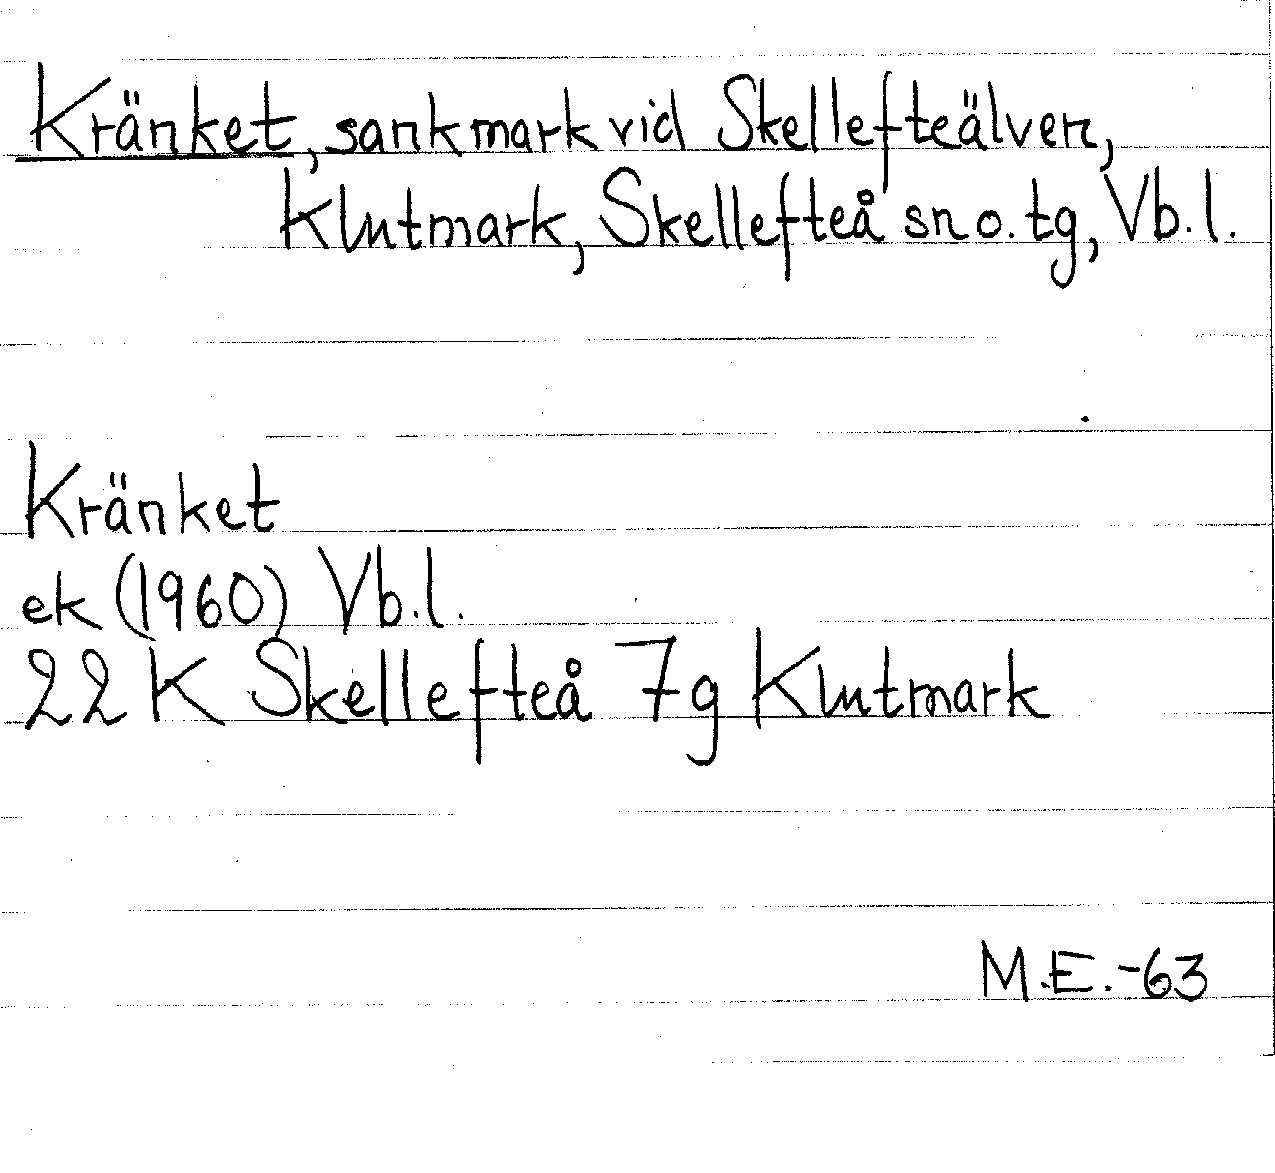 Kränket, sankmark vid Skellefteälven,
Klutmark, Skellefteå sn o. tg, Vb. l.
Kränket
ek (1960) Vb. l.
22 K Skellefteå 7g Klutmark
M.E.-63